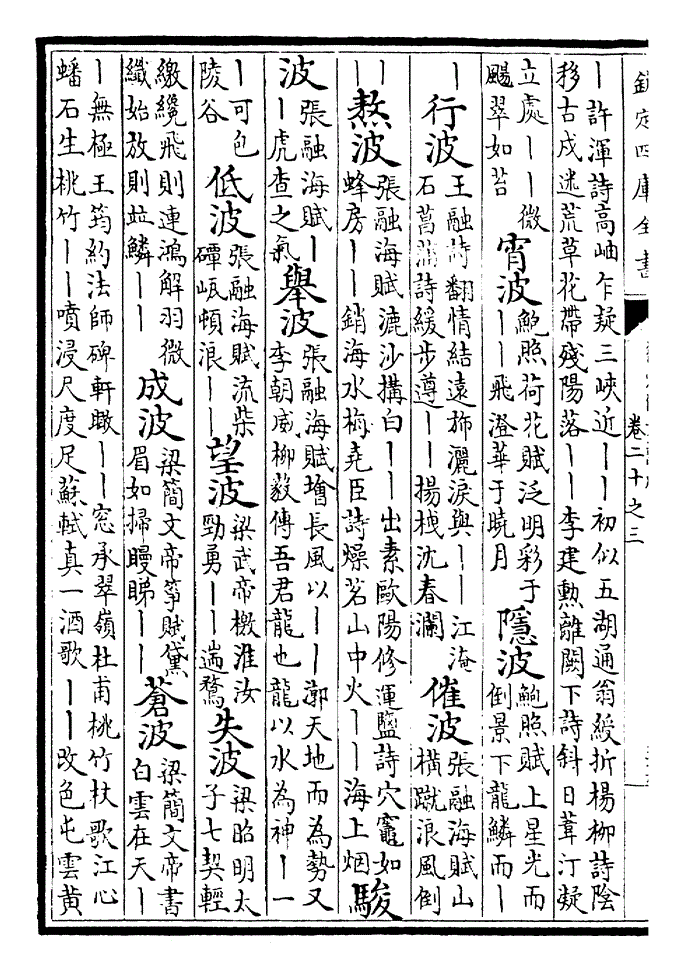 欽定四庫全書
卷二十之三
丨許渾詩高岫乍疑三峽近丨丨初似五湖通翁綬折楊柳詩陰
移古戍迷荒草花帶殘陽落丨丨李建勲離闕下詩斜日葦汀凝
立處丨丨微
颺翠如苔
宵波
鮑照荷花賦泛明彩于
丨丨飛澄華于曉月
隱波
鮑照賦上星光而
倒景下龍鱗而丨
丨
行波
王融詩翻情結遠斾灑淚與丨丨江淹
石菖蒲詩緩步遵丨丨揚栧沈春瀾
催波
張融海賦山
橫蹴浪風倒
丨丨
熬波
張融海賦漉沙搆白丨丨出素歐陽修運鹽詩穴竈如
蜂房丨丨銷海水梅堯臣詩燥茗山中火丨丨海上烟
駿
波
張融海賦丨
丨虎查之氣
舉波
張融海賦增長風以丨丨廓天地而為勢又
李朝威柳毅傳吾君龍也龍以水為神丨一
丨可包
陵谷
低波
張融海賦流柴
磹㟁頓浪丨丨
望波
梁武帝檄淮汝
勁勇丨丨遄騖
失波
梁昭明太
子七契輕
繳纔飛則連鴻解羽微
纖始放則竝鱗丨丨
成波
梁簡文帝箏賦黛
眉如掃曼睇丨丨
蒼波
梁簡文帝書
白雲在天丨
丨無極王筠約法師碑軒瞰丨丨窓承翠嶺杜甫桃竹杖歌江心
蟠石生桃竹丨丨噴浸尺度足蘇軾真一酒歌丨丨改色屯雲黄